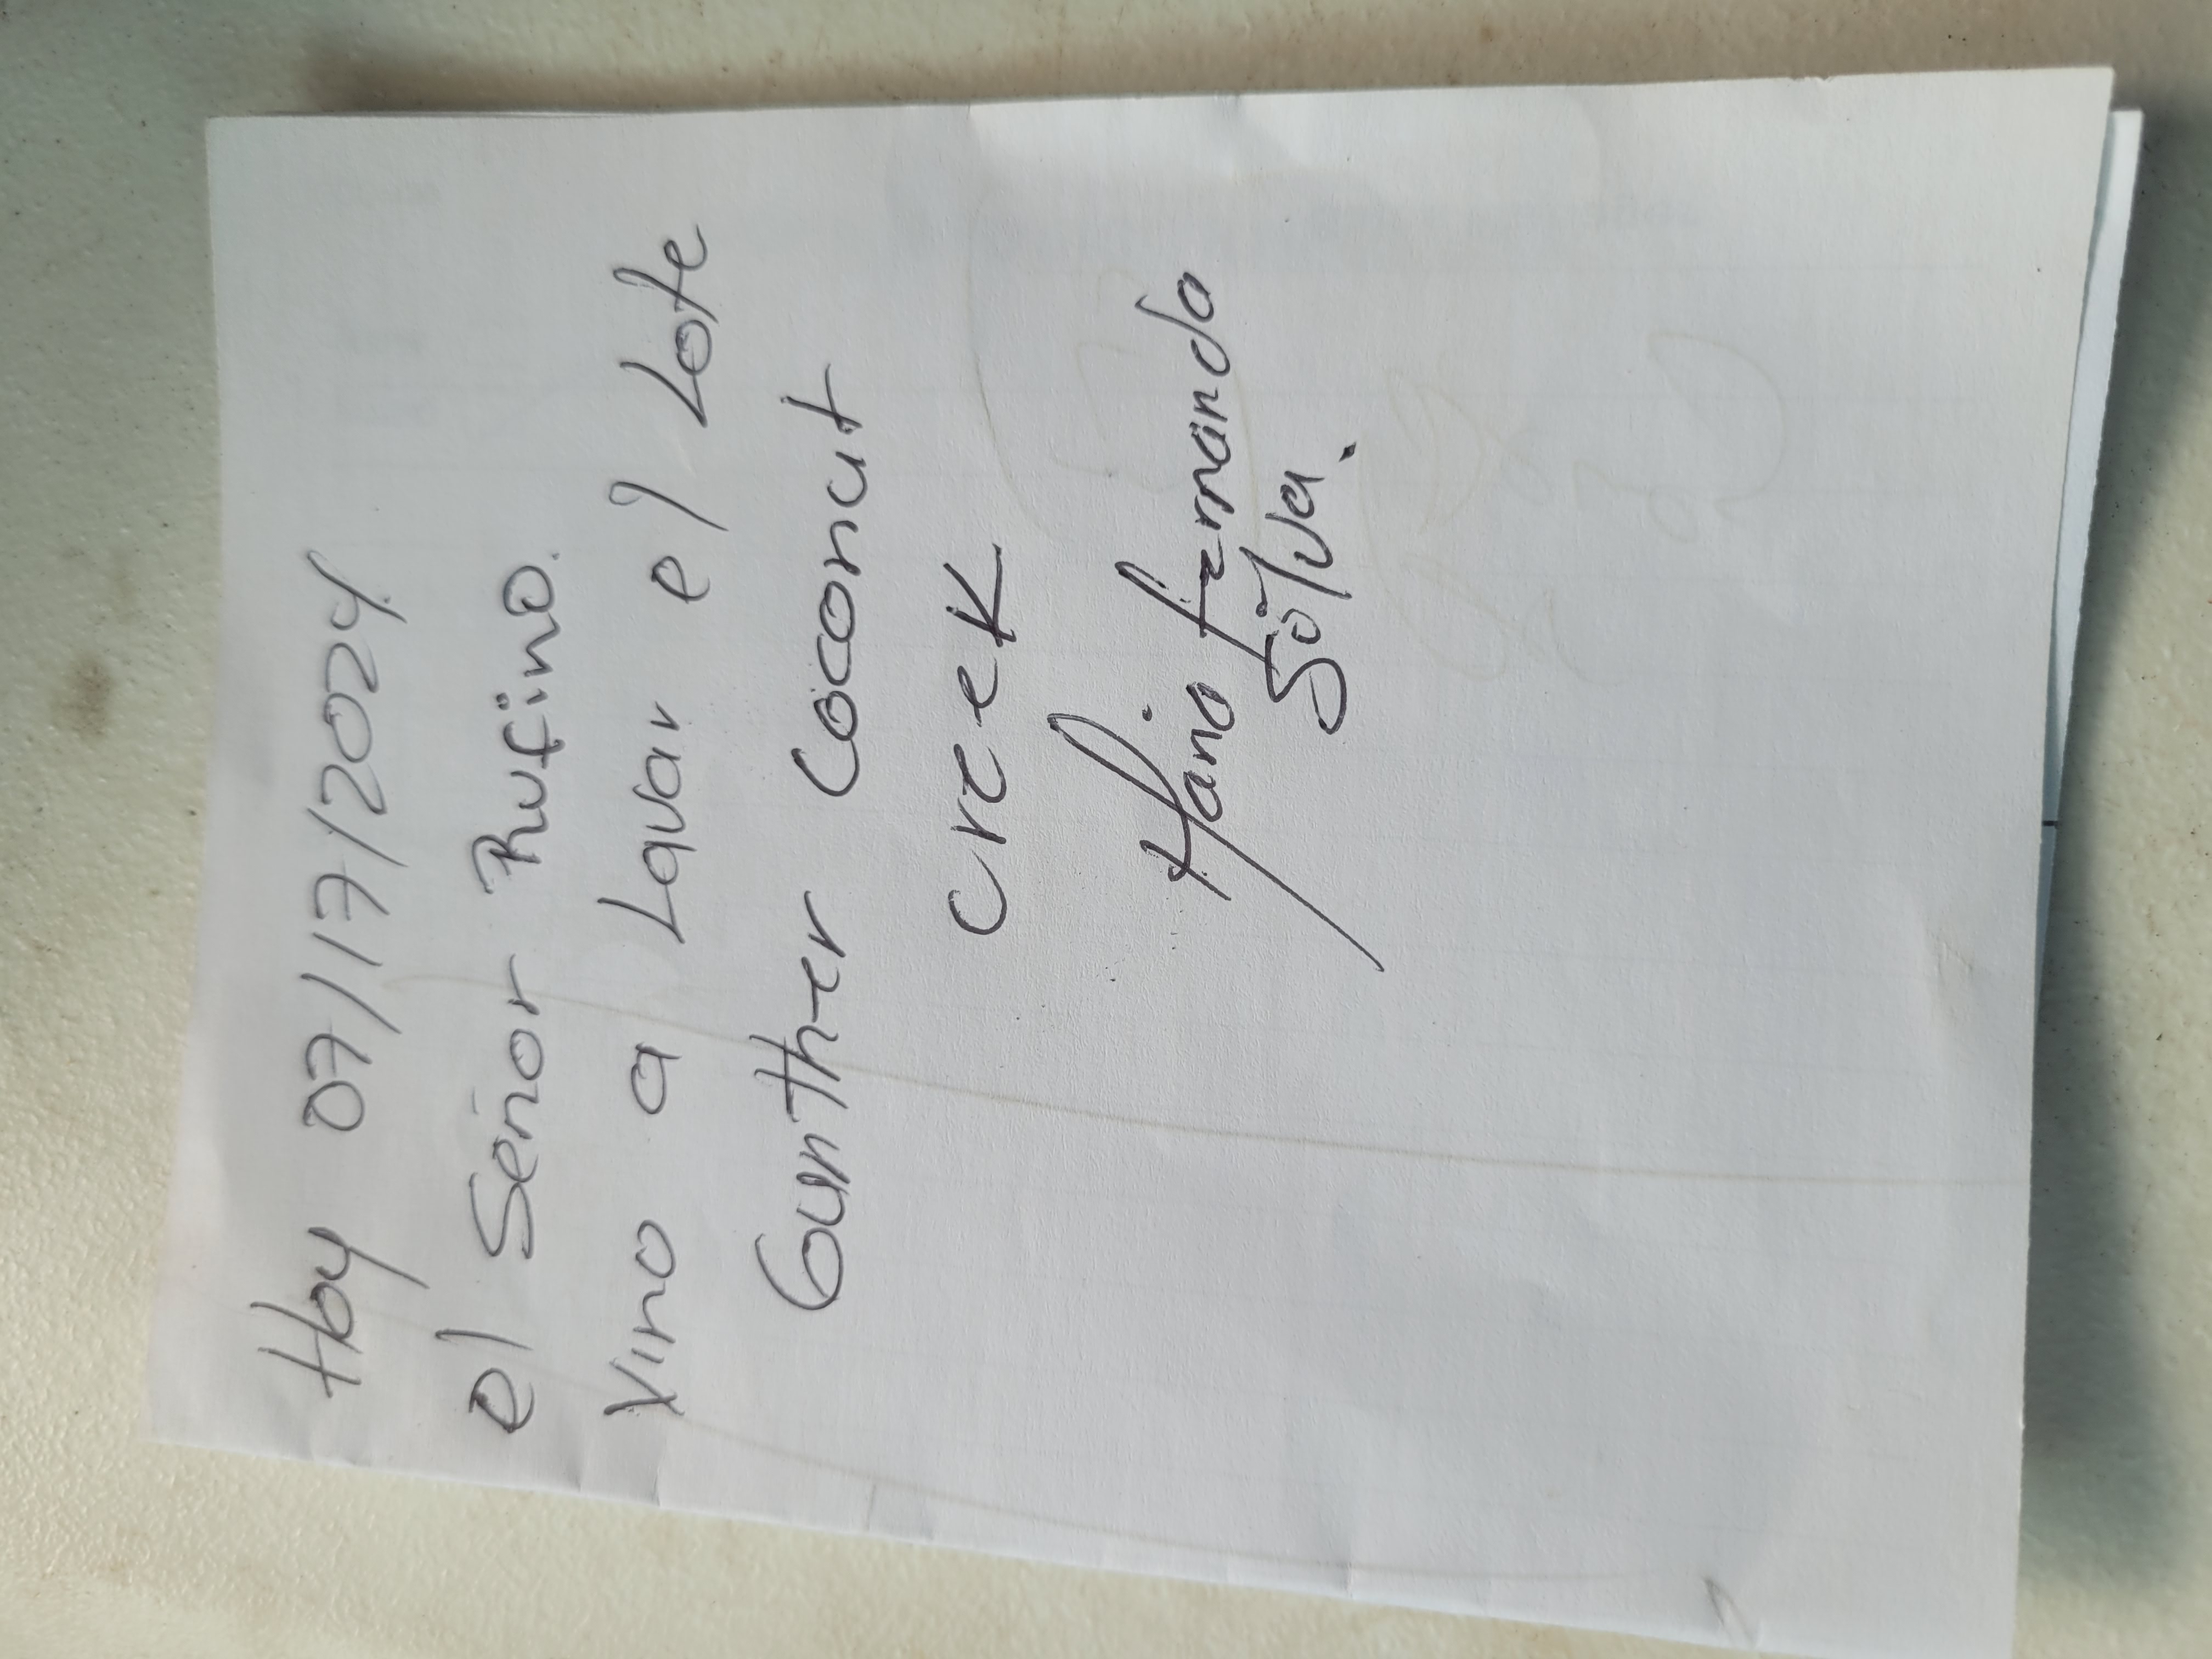 Hoy 07/17/2024
el Señor Rufino.
Vino a Lavar el Lote
Gunther Coconut
creek
Mario Fernando
Silva.